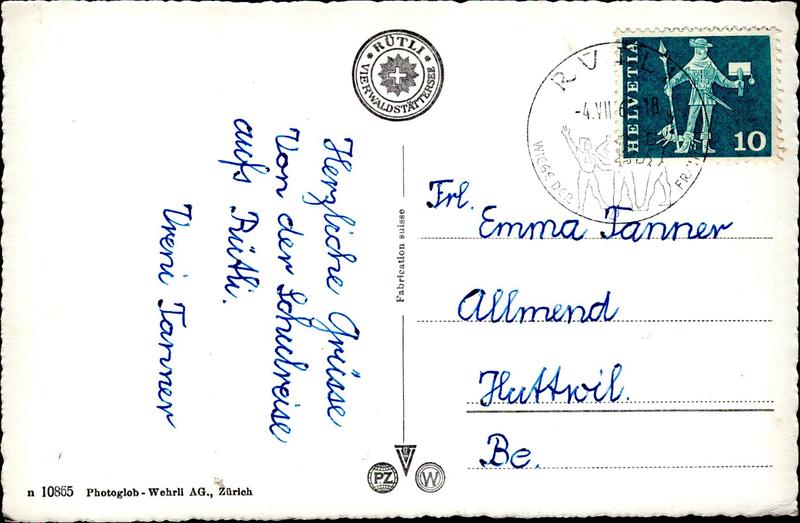 RÜTLI
VIERWALDSTÄTTERSEE
Herzliche Grüsse
Von der Schulreise
aufs Rütli.
Vreni Tanner
Fabrication suisse
RÜTLI
-4.VII.6 -18
WIEGE DER
HELVETIA
10
Frl. Emma Tanner
Allmend
Huttwil.
Be.
PZ
W
n 10865 Photoglob-Wehrli AG., Zürich